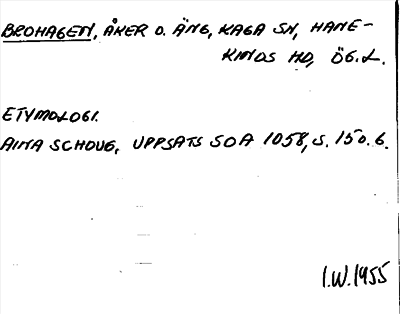 BROHAGEN, ÅKER O. ÄNG, KAGA SN, HANE-
KINDS HD, ÖG.L.
ETYMOLOGI.
AINA SCHOUG, UPPSATS SOA 1058, S. 150.6.
I.W. 1955